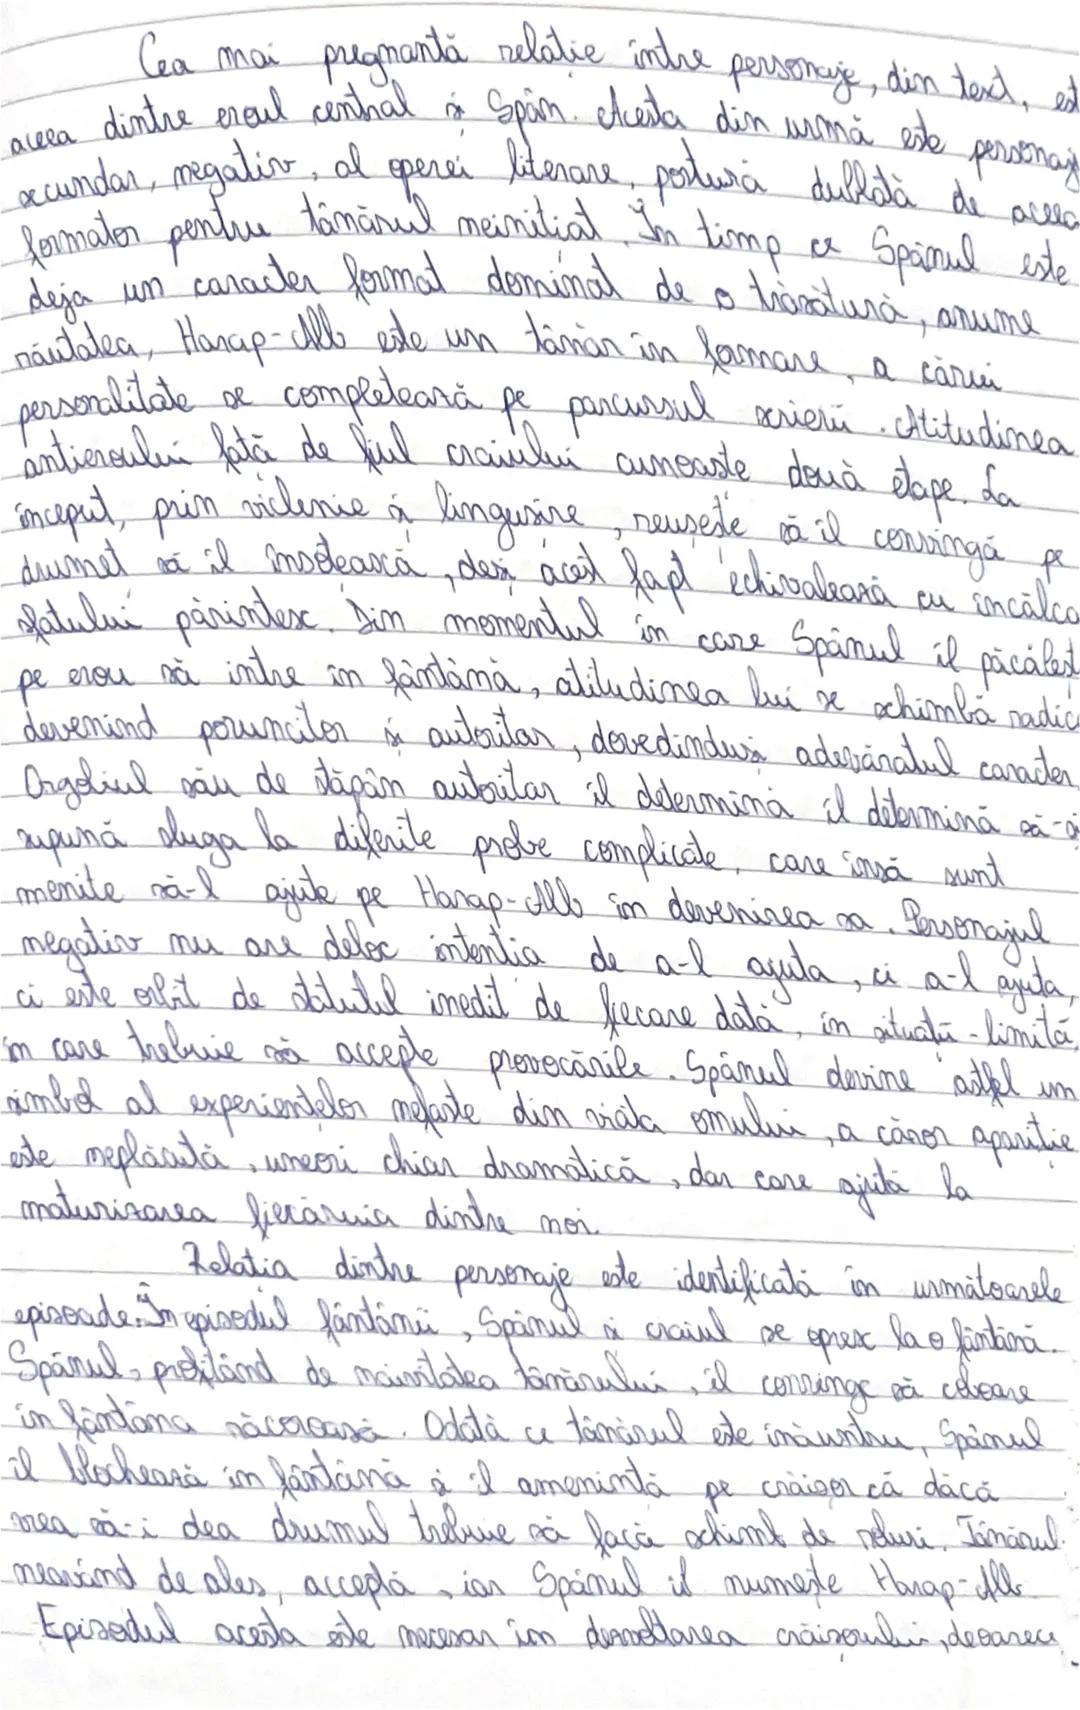 Cea mai pregnantă relație între personaje, din text, est
aceea dintre eroul central și Spân. Acesta din urmă este personaj
secundar, negativ, al operei literare, postură dublată de aceea
formator pentru tânărul neinițiat. În timp ce Spânul este
deja un caracter format dominat de o trăsătură, anume
răutatea, Harap-Alb este un tânăr în formare, a cărui
personalitate se completează pe parcursul scrierii. Atitudinea
antieroului față de fiul craiului cunoaște două etape. La
început, prin viclenie și lingușire, reușește să îl convingă pe
drumeț să îl însoțească, deși acest fapt echivalează cu încălca
sfatului părintesc. Din momentul în care Spânul îl păcălest
pe erou să intre în fântână, atitudinea lui se schimbă radica
devenind poruncitor și autoritar, dovedindu-și adevăratul caracter.
Orgoliul său de stăpân autoritar îl determină îl determină să-și
supună sluga la diferite probe complicate, care însă sunt
menite să-l ajute pe Harap-Alb în devenirea sa. Personajul
negativ nu are deloc intenția de a-l ajuta, ci a-l ajuta,
ci este orbit de statutul inedit de fiecare dată, în situații-limită,
în care trebuie să accepte provocările. Spânul devine astfel un
simbol al experiențelor nefaste din viața omului, a căror apariție
este neplăcută, uneori chiar dramatică, dar care ajută la
maturizarea fiecăruia dintre noi.
Relația dintre personaje este identificată în următoarele
episoade: În episodul fântânii, Spânul și craiul se opresc la o fântână.
Spânul, profitând de naivitatea tânărului, îl convinge să coboare
în fântâna răcoroasă. Odată ce tânărul este înăuntru, Spânul
îl blochează în fântână și îl amenință pe crăișor că dacă
vrea să-i dea drumul trebuie să facă schimb de roluri. Tânărul
neavând de ales, acceptă, iar Spânul îl numește Harap-Alb.
Episodul acesta este necesar în dezvoltarea crăișorului, deoarece